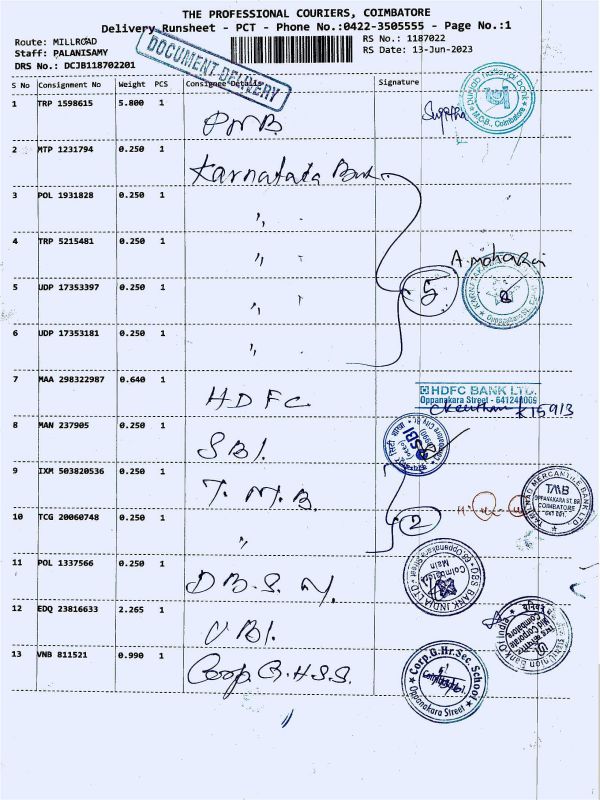 THE PROFESSIONAL COURIERS, COIMBATORE
Delivery Runsheet - PCT - Phone No.:0422-3505555 - Page No.:1
Route: MILLROAD
RS No.: 1187022
Staff: PALANISAMY
RS Date: 13-Jun-2023
DRS No.: DCJB118702201
DOCUMENT DELIVERY
S No Consignment No Weight PCS Consignee Details Signature
1 TRP 1598615 5.800 1 PNB
Punjab National Bank
M.C.B., Coimbatore
2 MTP 1231794 0.250 1 Karnataka Bank
3 POL 1931828 0.250 1 "
4 TRP 5215481 0.250 1 "
5 UDP 17353397 0.250 1 " 5
6 UDP 17353181 0.250 1 "
7 MAA 298322987 0.640 1 HDFC
HDFC BANK LTD.
Oppanakara Street - 641241
8 MAN 237905 0.250 1 SBI.
SBI
9 IXM 503820536 0.250 1 T.M.B.
TAMILNAD MERCANTILE BANK LTD.
TMB
OPPANAKARA ST. BR.
COIMBATORE
641 001.
10 TCG 20060748 0.250 1 " 2
11 POL 1337566 0.250 1 D.B.S.
DBS BANK INDIA LTD.
Oppanakara Street
Coimbatore
Main
12 EDQ 23816633 2.265 1 UBI.
Union Bank Of India
Mid Corporate
Coimbatore
13 VNB 811521 0.990 1 Corp. G.H.S.S.
Corp.G.Hr.Sec. School
Oppanakara Street